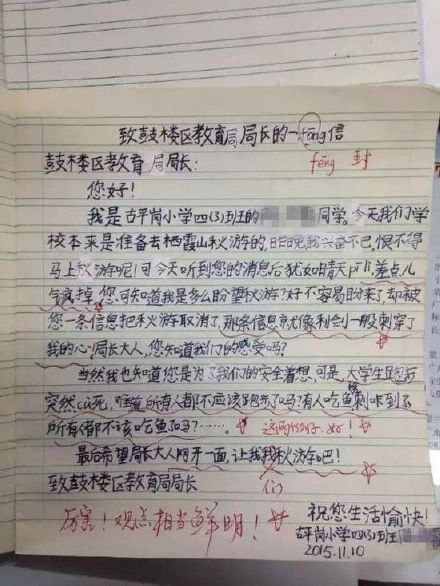 致鼓楼区教育局局长的一fōng信
fēng 封
鼓楼区教育局局长:
您好!
我是古平岗小学四(3)班的 同学。今天我们学
校本来是准备去栖霞山秋游的,昨晚我兴奋不已,恨不得
马上秋游呢!可今天听到您的消息后犹如晴天pīlì,差点儿
气疯掉,您可知道我是多么盼望秋游?好不容易盼来了,却被
您一条信息把秋游取消了,那条信息就像利剑一般刺穿了
我的心!局长大人,您知道我们的感受吗?
当然我也知道您是为了我们的安全着想,可是,大学生跑步
突然cù死,难道所有人都不应该跑步了吗?有人吃鱼被刺咔到了
所有都不该吃鱼了吗?……。 这两个例子,好!
最后希望局长大人网开一面,让我我秋游吧!
们
致鼓楼区教育局局长
厉害!观点相当鲜明!
祝您生活愉快!
古平岗小学四(3)班
2015.11.10